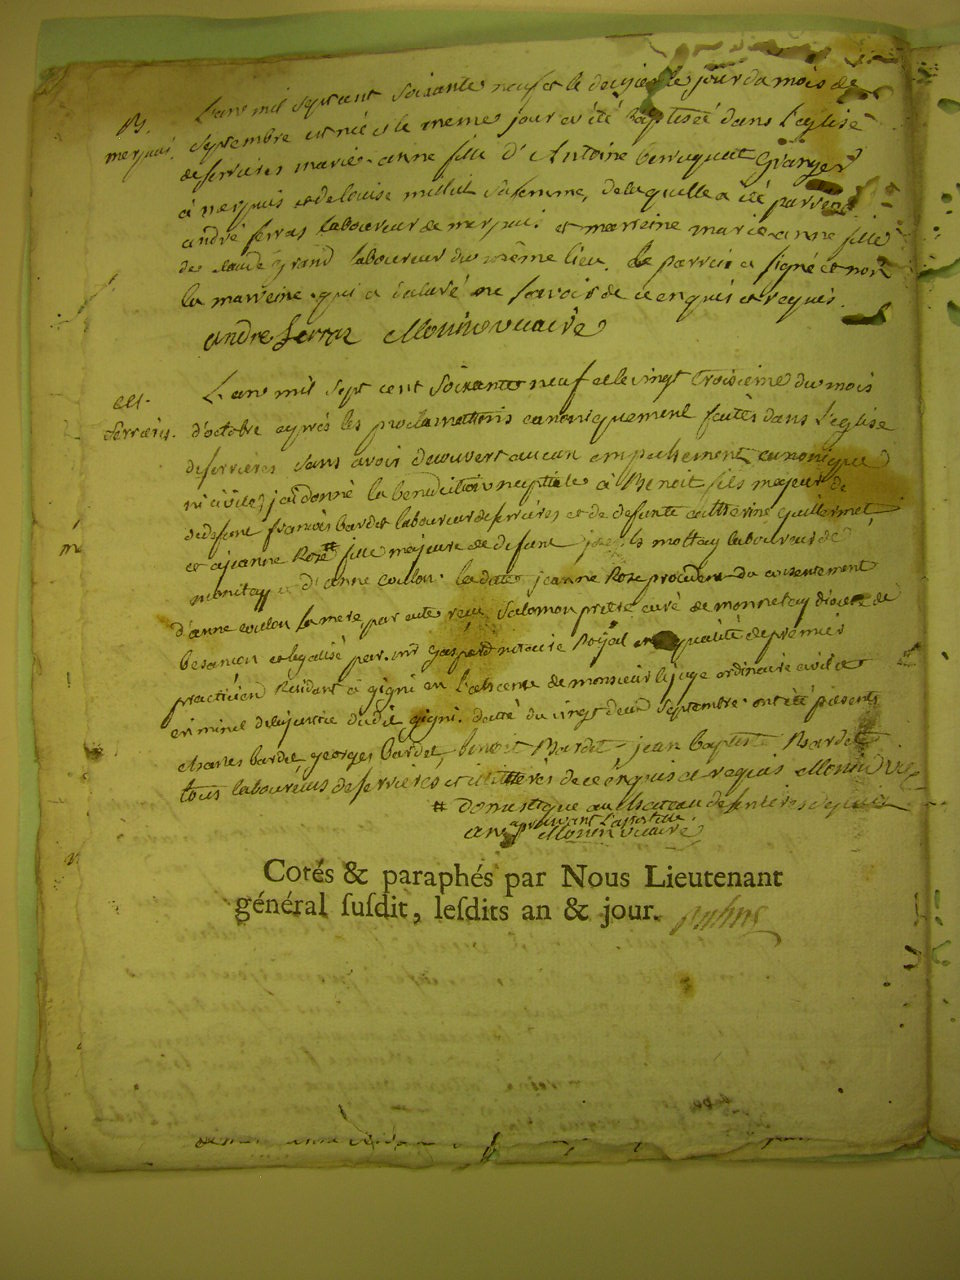 B.
merpuis.
L'an mil sept cent soixante neuf et le douzieme jour du mois de
septembre est née et le meme jour a été Baptisée dans l'eglise
de ferrieres marie-anne fille d'Antoine Granger
à merpuis et de louise millet sa femme, de laquelle a été parrein
andré ferras laboureur de merpuis et marreine marie-anne fille
de claude grand laboureur du même lieu. Le parrein a signé et non
la marreine qui a déclaré ne savoir de ce enquis et requis.
andre ferraz Monin vicaire
M.
ferrieres.
L'an mil sept cent soixante neuf et le vingt troisieme du mois
d'octobre après les proclamations canoniquement faites dans l'eglise
de ferrieres sans avoir decouvert aucun empechement canonique
ni civile, j'ai donné la benediction nuptiale à Benoit fils majeur de
de defunt françois bardet laboureur de ferrieres et de defunte catherine guillermet
et a jeanne Roze # fille majeure de defunt mottay laboureur de
monitay et d'anne coulon. la dite jeanne Roze procedant du consentement
d'anne coulon sa mere par acte reçu Salomon pretre curé de monnetay diocese de
besancon et legalisé par mr gaspard notaire Royal en qualité de premier
practicien Residant à gigni en l'absence de monsieur le juge ordinaire civil et
criminel de la justice dudit gigni. datté du vingt deux septembre. ont été présents
charles bardet, georges bardet, benoit Bardet, jean baptiste Bardet
tous laboureurs de ferrieres et illitterés de ce enquis et requis Monin vic
# domestique au chateau de ferrieres depuis
an approuvant l'apostille.
Monin vicaire
Cotés & paraphés par Nous Lieutenant
général susdit, lesdits an & jour.